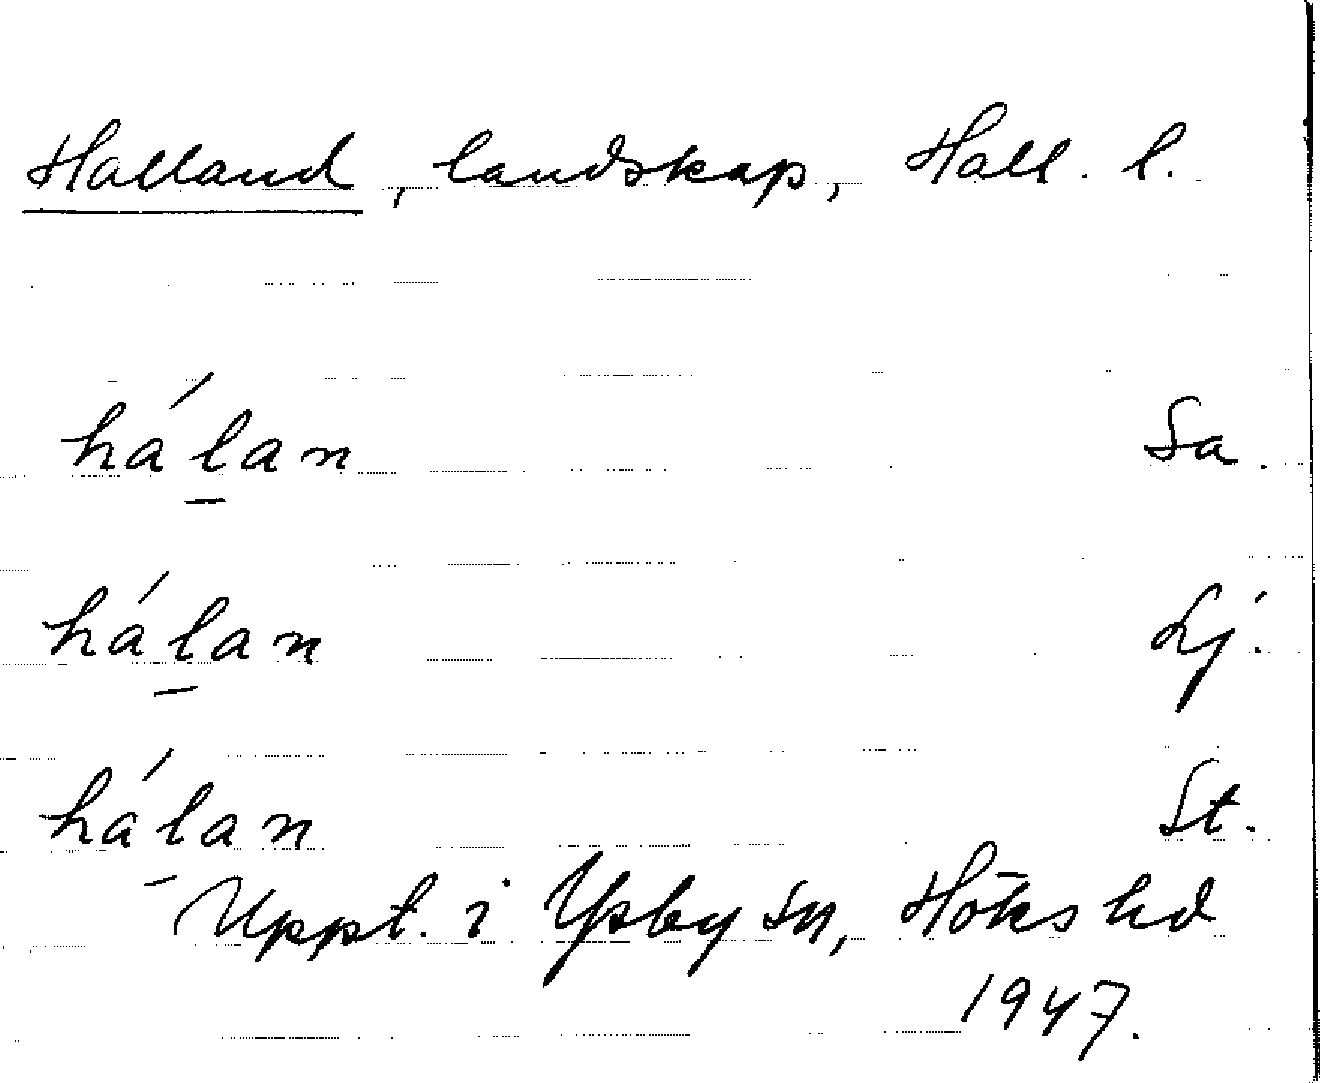 Halland, landskap, Hall. l.
há̱lan Sa.
há̱lan Lj.
há̱lan St.
Uppt. i Ysby sn, Höks hd
1947.